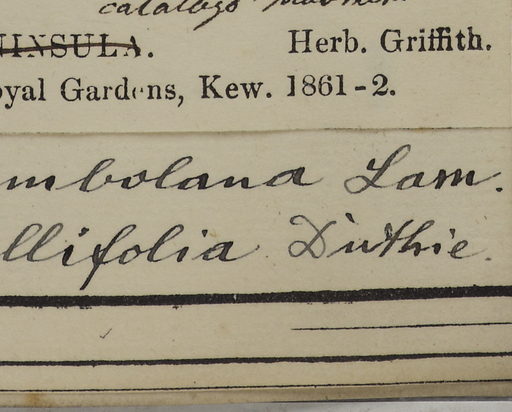 catalogs number
NINSULA. Herb. Griffith.
oyal Gardens, Kew. 1861-2.
mbolana Lam.
llifolia Duthie.